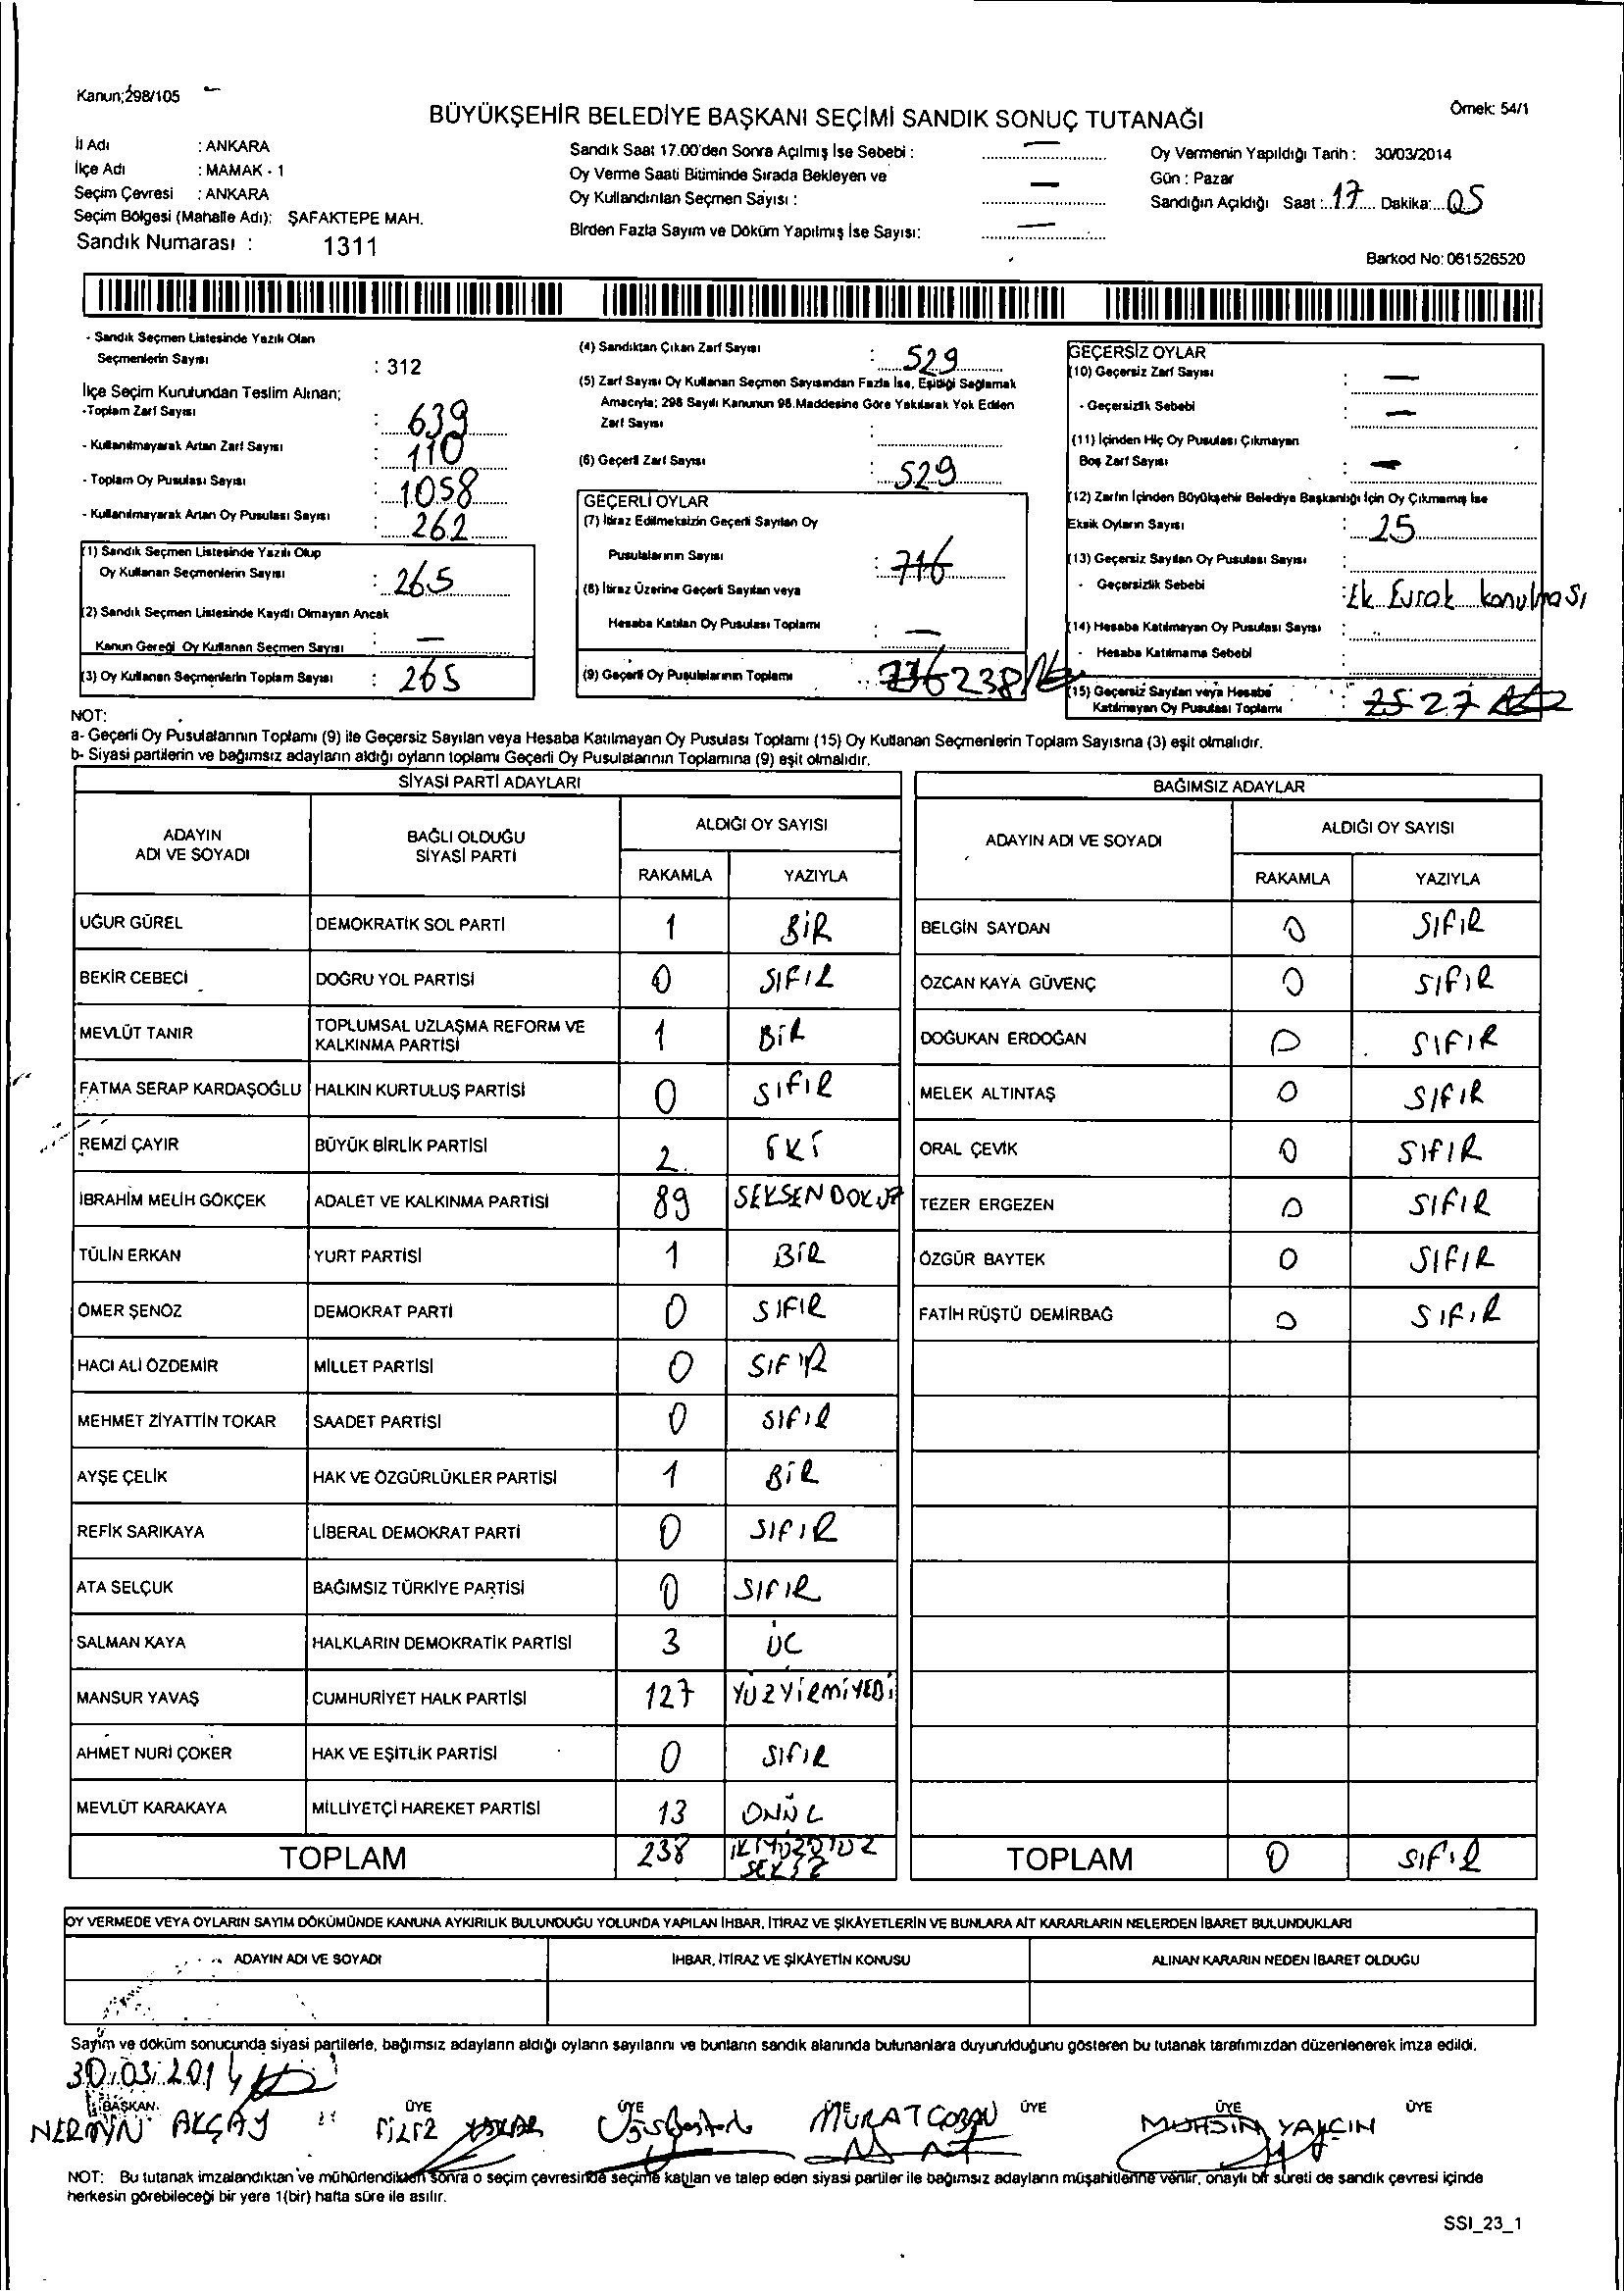 Kanun;298/105
Örnek: 54/1
BÜYÜKŞEHİR BELEDİYE BAŞKANI SEÇİMİ SANDIK SONUÇ TUTANAĞI
İl Adı : ANKARA
İlçe Adı : MAMAK - 1
Seçim Çevresi : ANKARA
Seçim Bölgesi (Mahalle Adı): ŞAFAKTEPE MAH.
Sandık Numarası : 1311
Sandık Saat 17.00'den Sonra Açılmış İse Sebebi : —
Oy Verme Saati Bitiminde Sırada Bekleyen ve
Oy Kullandırılan Seçmen Sayısı : —
Birden Fazla Sayım ve Döküm Yapılmış İse Sayısı: —
Oy Vermenin Yapıldığı Tarih : 30/03/2014
Gün : Pazar
Sandığın Açıldığı Saat : 17 Dakika: 05
Barkod No: 061526520
- Sandık Seçmen Listesinde Yazılı Olan
Seçmenlerin Sayısı : 312
İlçe Seçim Kurulundan Teslim Alınan;
-Toplam Zarf Sayısı : 639
- Kullanılmayarak Artan Zarf Sayısı : 110
- Toplam Oy Pusulası Sayısı : 1058
- Kullanılmayarak Artan Oy Pusulası Sayısı : 262
(1) Sandık Seçmen Listesinde Yazılı Olup
Oy Kullanan Seçmenlerin Sayısı : 265
(2) Sandık Seçmen Listesinde Kayıtlı Olmayan Ancak
Kanun Gereği Oy Kullanan Seçmen Sayısı : —
(3) Oy Kullanan Seçmenlerin Toplam Sayısı : 265
(4) Sandıktan Çıkan Zarf Sayısı : 529
(5) Zarf Sayısı Oy Kullanan Seçmen Sayısından Fazla İse, Eşitliği Sağlamak
Amacıyla; 298 Sayılı Kanunun 98.Maddesine Göre Yakılarak Yok Edilen
Zarf Sayısı :
(6) Geçerli Zarf Sayısı : 529
GEÇERLİ OYLAR
(7) İtiraz Edilmeksizin Geçerli Sayılan Oy
Pusulalarının Sayısı : 716
(8) İtiraz Üzerine Geçerli Sayılan veya
Hesaba Katılan Oy Pusulası Toplamı : —
(9) Geçerli Oy Pusulalarının Toplamı : 736 238
GEÇERSİZ OYLAR
(10) Geçersiz Zarf Sayısı : —
- Geçersizlik Sebebi : —
(11) İçinden Hiç Oy Pusulası Çıkmayan
Boş Zarf Sayısı : —
(12) Zarfın İçinden Büyükşehir Belediye Başkanlığı İçin Oy Çıkmamış İse
Eksik Oyların Sayısı : 25
(13) Geçersiz Sayılan Oy Pusulası Sayısı :
- Geçersizlik Sebebi : Ek Evrak konulması
(14) Hesaba Katılmayan Oy Pusulası Sayısı :
- Hesaba Katılmama Sebebi :
(15) Geçersiz Sayılan veya Hesaba
Katılmayan Oy Pusulası Toplamı : 25 27
NOT:
a- Geçerli Oy Pusulalarının Toplamı (9) ile Geçersiz Sayılan veya Hesaba Katılmayan Oy Pusulası Toplamı (15) Oy Kullanan Seçmenlerin Toplam Sayısına (3) eşit olmalıdır.
b- Siyasi partilerin ve bağımsız adayların aldığı oyların toplamı Geçerli Oy Pusulalarının Toplamına (9) eşit olmalıdır.
SİYASİ PARTİ ADAYLARI
ADAYIN ADI VE SOYADI BAĞLI OLDUĞU SİYASİ PARTİ ALDIĞI OY SAYISI
RAKAMLA YAZIYLA
UĞUR GÜREL DEMOKRATİK SOL PARTİ 1 BİR
BEKİR CEBECİ DOĞRU YOL PARTİSİ 0 SIFIR
MEVLÜT TANIR TOPLUMSAL UZLAŞMA REFORM VE KALKINMA PARTİSİ 1 BİR
FATMA SERAP KARDAŞOĞLU HALKIN KURTULUŞ PARTİSİ 0 SIFIR
REMZİ ÇAYIR BÜYÜK BİRLİK PARTİSİ 2 İKİ
İBRAHİM MELİH GÖKÇEK ADALET VE KALKINMA PARTİSİ 89 SEKSENDOKUZ
TÜLİN ERKAN YURT PARTİSİ 1 BİR
ÖMER ŞENÖZ DEMOKRAT PARTİ 0 SIFIR
HACI ALİ ÖZDEMİR MİLLET PARTİSİ 0 SIFIR
MEHMET ZİYATTİN TOKAR SAADET PARTİSİ 0 SIFIR
AYŞE ÇELİK HAK VE ÖZGÜRLÜKLER PARTİSİ 1 BİR
REFİK SARIKAYA LİBERAL DEMOKRAT PARTİ 0 SIFIR
ATA SELÇUK BAĞIMSIZ TÜRKİYE PARTİSİ 0 SIFIR
SALMAN KAYA HALKLARIN DEMOKRATİK PARTİSİ 3 ÜÇ
MANSUR YAVAŞ CUMHURİYET HALK PARTİSİ 127 YÜZYİRMİYEDİ
AHMET NURİ ÇOKER HAK VE EŞİTLİK PARTİSİ 0 SIFIR
MEVLÜT KARAKAYA MİLLİYETÇİ HAREKET PARTİSİ 13 ONÜÇ
TOPLAM 238 İKİYÜZOTUZ SEKİZ
BAĞIMSIZ ADAYLAR
ADAYIN ADI VE SOYADI ALDIĞI OY SAYISI
RAKAMLA YAZIYLA
BELGİN SAYDAN 0 SIFIR
ÖZCAN KAYA GÜVENÇ 0 SIFIR
DOĞUKAN ERDOĞAN 0 SIFIR
MELEK ALTINTAŞ 0 SIFIR
ORAL ÇEVİK 0 SIFIR
TEZER ERGEZEN 0 SIFIR
ÖZGÜR BAYTEK 0 SIFIR
FATİH RÜŞTÜ DEMİRBAĞ 0 SIFIR
TOPLAM 0 SIFIR
OY VERMEDE VEYA OYLARIN SAYIM DÖKÜMÜNDE KANUNA AYKIRILIK BULUNDUĞU YOLUNDA YAPILAN İHBAR, İTİRAZ VE ŞİKÂYETLERİN VE BUNLARA AİT KARARLARIN NELERDEN İBARET BULUNDUKLARI
ADAYIN ADI VE SOYADI İHBAR, İTİRAZ VE ŞİKÂYETİN KONUSU ALINAN KARARIN NEDEN İBARET OLDUĞU
Sayım ve döküm sonucunda siyasi partilerle, bağımsız adayların aldığı oyların sayılarını ve bunların sandık alanında bulunanlara duyurulduğunu gösteren bu tutanak tarafımızdan düzenlenerek imza edildi.
30.03.2014
BAŞKAN ÜYE ÜYE ÜYE ÜYE ÜYE ÜYE
NERMİN AKÇAY FİLİZ MURAT ÇOBAN MUHSİN YALÇIN
NOT: Bu tutanak imzalandıktan ve mühürlendikten sonra o seçim çevresinde seçime katılan ve talep eden siyasi partiler ile bağımsız adayların müşahitlerine verilir, onaylı bir sureti de sandık çevresi içinde
herkesin görebileceği bir yere 1(bir) hafta süre ile asılır.
SSI_23_1